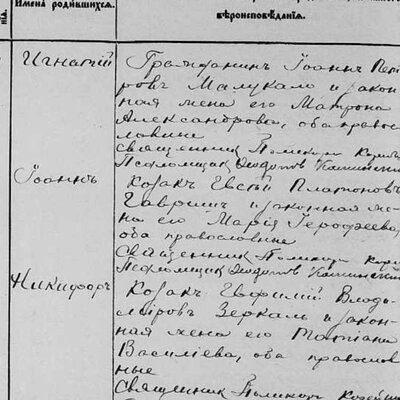 Имена родившихся.
вѣроисповѣданія.
Игнатій
Гражданинъ Іоаннъ Пет
ровъ Малукало и закон
ная жена его Матрона
Александрова, оба правос
лавные
Священник Поликарп
Псаломщик
Іоаннъ
Козакъ Евсѣй Платоновъ
Гавришъ и законная же
на его Марія Герофеева,
оба православные
Священник Поликарп
Псаломщик
Никифоръ
Козакъ Евфимій Влады
міровъ Зеркаль и закон
ная жена его Татіана
Василіева, оба православ
ные
Священник Поликарп